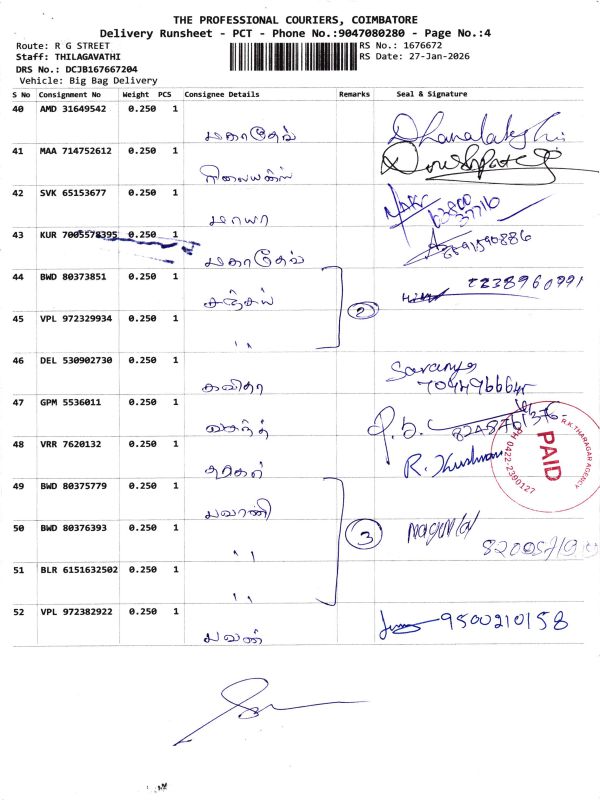 THE PROFESSIONAL COURIERS, COIMBATORE
Delivery Runsheet - PCT - Phone No.:9047080280 - Page No.:4
Route: R G STREET
RS No.: 1676672
Staff: THILAGAVATHI
RS Date: 27-Jan-2026
DRS No.: DCJB167667204
Vehicle: Big Bag Delivery
S No Consignment No Weight PCS Consignee Details Remarks Seal & Signature
40 AMD 31649542 0.250 1
மகாதேவ் Dhanalakshmi
41 MAA 714752612 0.250 1
ரிலையன்ஸ்
42 SVK 65153677 0.250 1
மாயா 63800 37716
43 KUR 7005578395 0.250 1
மகாதேவ் 8591590886
44 BWD 80373851 0.250 1
சஞ்சய் 2238960991
2
45 VPL 972329934 0.250 1
"
46 DEL 530902730 0.250 1
கவிதா Saranya
47 GPM 5536011 0.250 1
வசந்த்
48 VRR 7620132 0.250 1
R.K.THARAGAR AGENCY
PAID
PH 0422-2390127
49 BWD 80375779 0.250 1
பவானி
50 BWD 80376393 0.250 1
3
"
51 BLR 6151632502 0.250 1
"
52 VPL 972382922 0.250 1
பவண் 9500210158